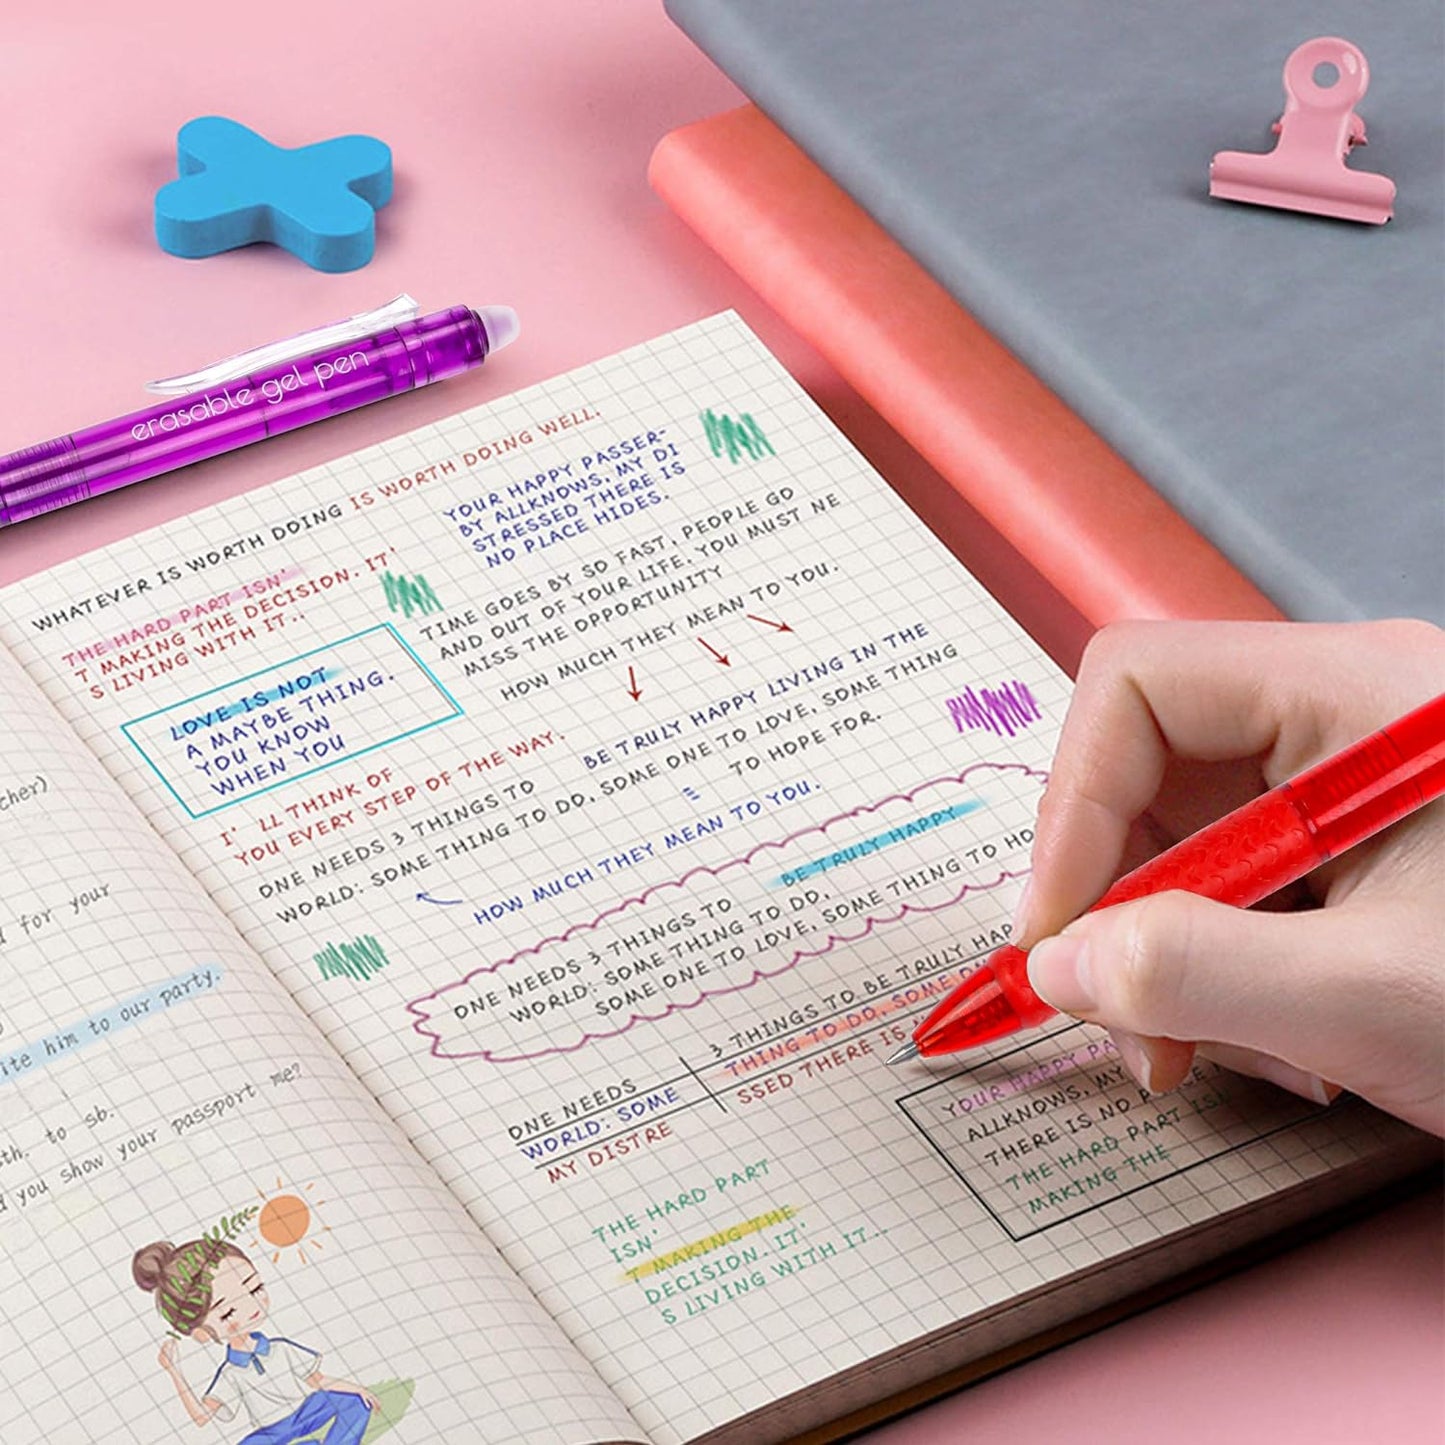 erasable gel pen
WHATEVER IS WORTH DOING IS WORTH DOING WELL.
THE HARD PART ISN'
T MAKING THE DECISION. IT'
S LIVING WITH IT..
YOUR HAPPY PASSER-
BY ALLKNOWS, MY DI
STRESSED THERE IS
NO PLACE HIDES.
TIME GOES BY SO FAST, PEOPLE GO
AND OUT OF YOUR LIFE. YOU MUST NE
MISS THE OPPORTUNITY
HOW MUCH THEY MEAN TO YOU.
LOVE IS NOT
A MAYBE THING.
YOU KNOW
WHEN YOU
I' LL THINK OF
YOU EVERY STEP OF THE WAY.
BE TRULY HAPPY LIVING IN THE
ONE NEEDS 3 THINGS TO
WORLD: SOME THING TO DO, SOME ONE TO LOVE, SOME THING
TO HOPE FOR.
HOW MUCH THEY MEAN TO YOU.
BE TRULY HAPPY
ONE NEEDS 3 THINGS TO
WORLD: SOME THING TO DO,
SOME ONE TO LOVE, SOME THING TO HO
3 THINGS TO BE TRULY HAP
THING TO DO, SOME
SSED THERE IS
ONE NEEDS
WORLD: SOME
MY DISTRE
YOUR HAPPY PA
ALLKNOWS, MY
THERE IS NO
THE HARD PART ISN
MAKING THE
THE HARD PART
ISN'
T MAKING THE
DECISION. IT'
S LIVING WITH IT..
cher)
for your
ite him to our party.
sth. to sb.
d you show your passport me?